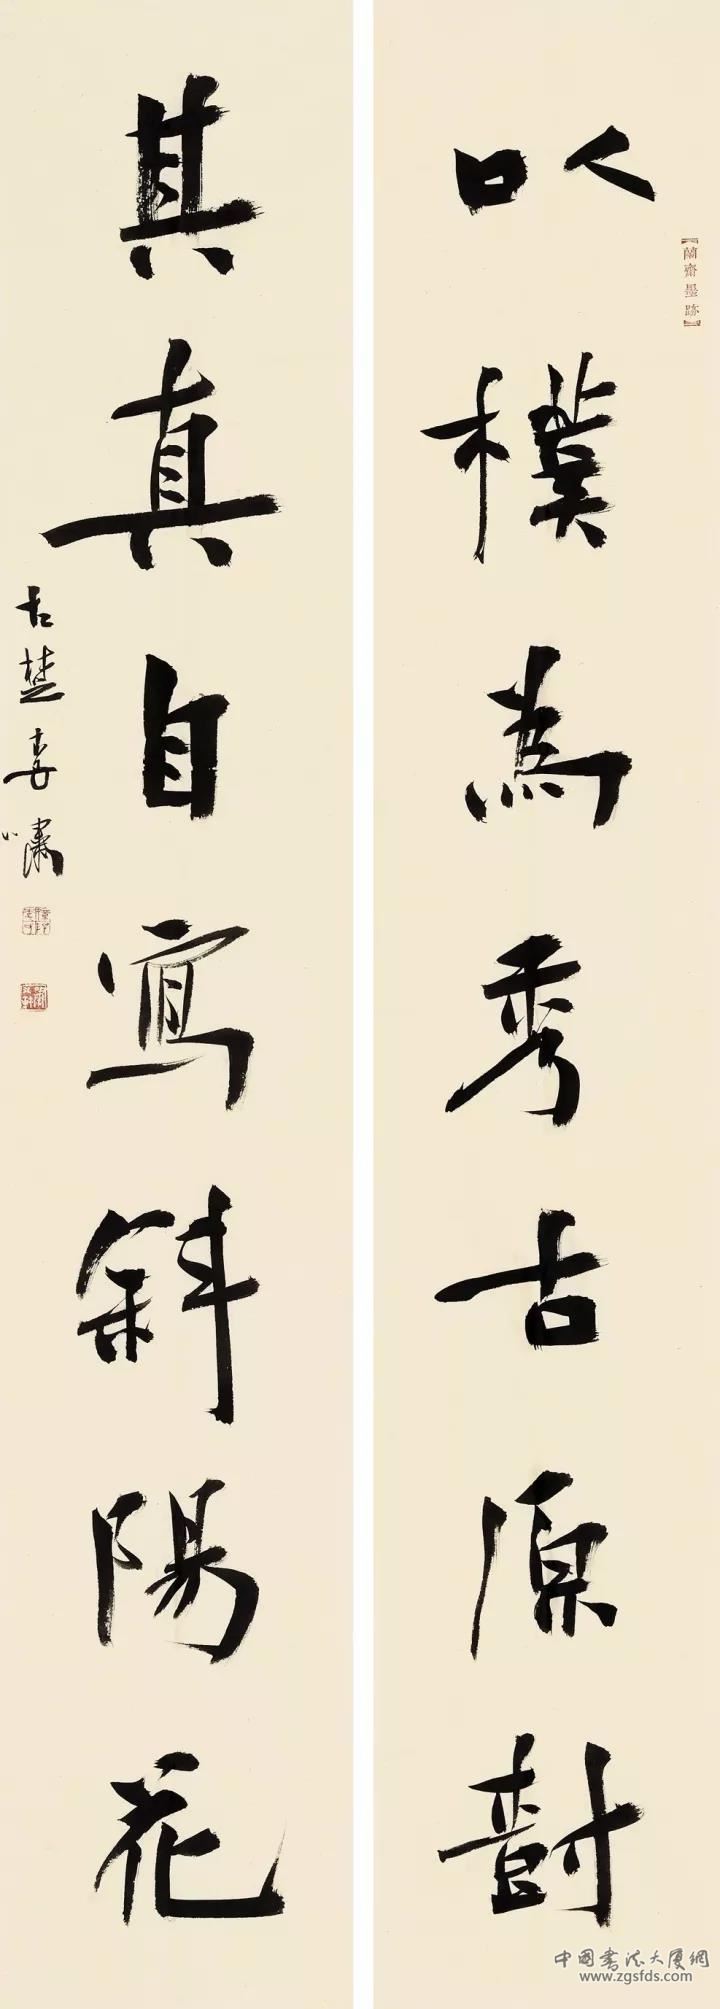 以樸為秀古原樹
其真自寫斜陽花
古楚李嘯
【蘭齋墨跡】
中国書法大廈網
www.zgsfds.com